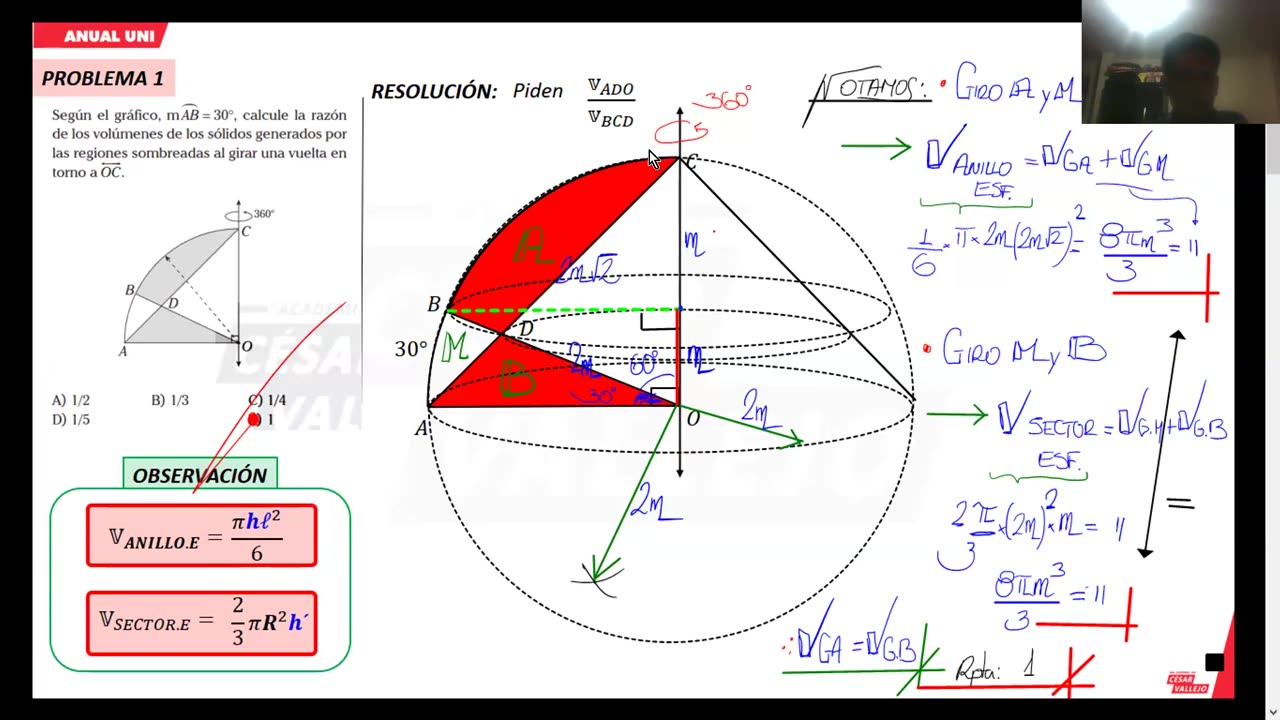 ANUAL UNI
PROBLEMA 1
Según el gráfico, mAB = 30°, calcule la razón
de los volúmenes de los sólidos generados por
las regiones sombreadas al girar una vuelta en
torno a OC.
360°
C
B
D
A
O
A) 1/2 B) 1/3 C) 1/4
D) 1/5 1
OBSERVACIÓN
𝕍ANILLO.E = πhℓ²/6
𝕍SECTOR.E = 2/3 πR²h´
RESOLUCIÓN: Piden 𝕍ADO/𝕍BCD
360°
C
A
m
2m√2
B
D
30°
M
2m
60°
m
B
30°
A
O
2m
2m
NOTAMOS: • GIRO A y M
𝕍ANILLO ESF. = 𝕍GA + 𝕍GM
1/6 × π × 2m(2m√2)² = 8πm³/3 = 11
• GIRO M y B
𝕍SECTOR ESF. = 𝕍G.M + 𝕍G.B
2π/3 × (2m)² × m = 11
=
8πm³/3 = 11
∴ 𝕍GA = 𝕍G.B
Rpta: 1
CÉSAR
VALLEJO